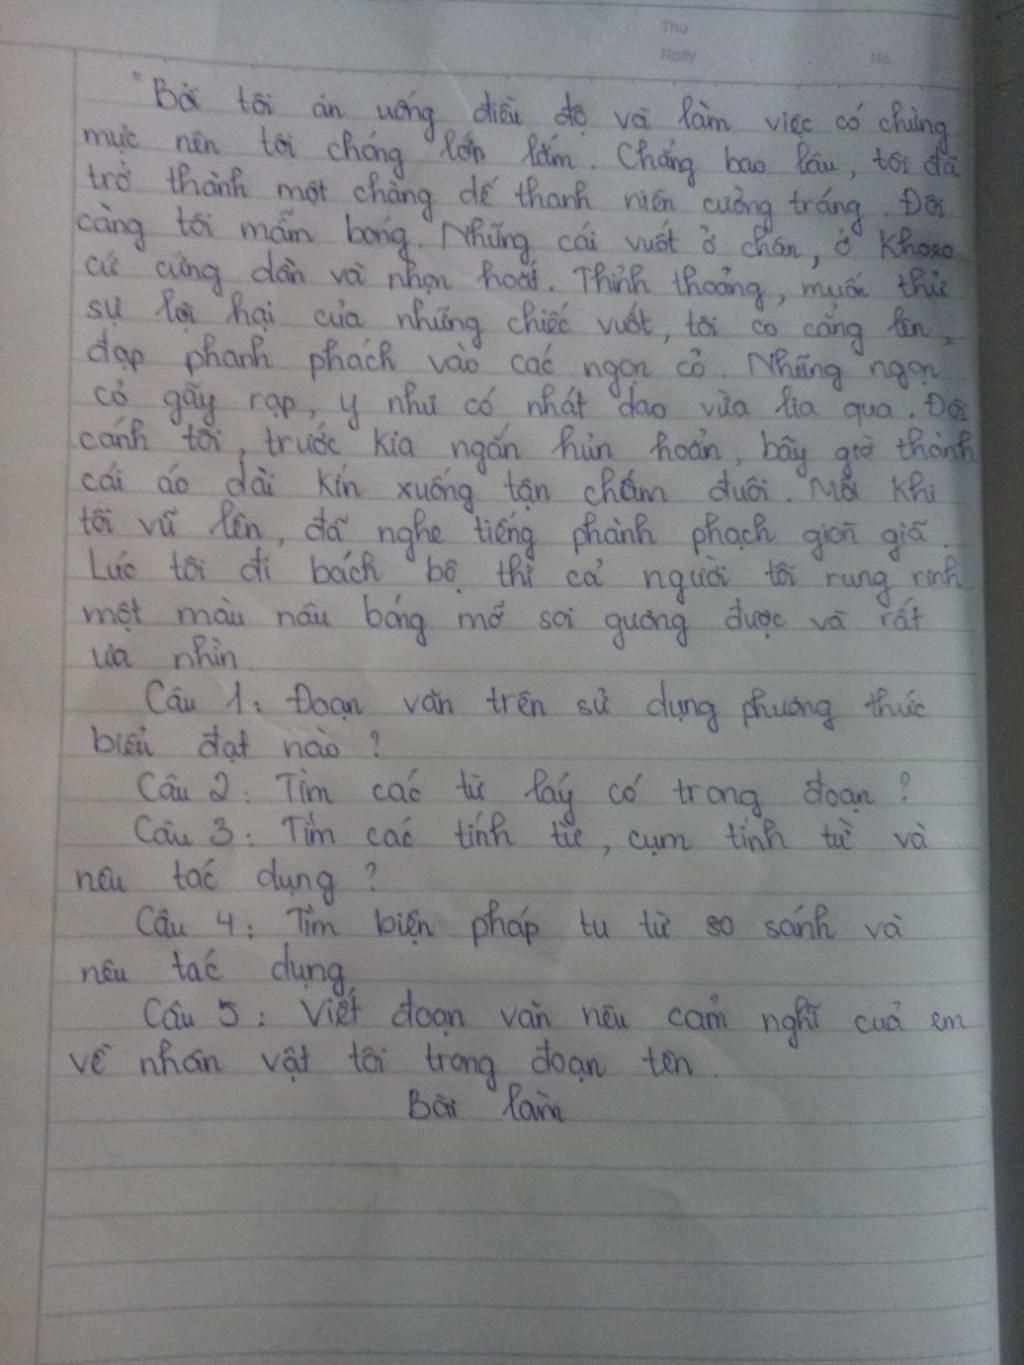 Thứ
Ngày No.
"Bởi tôi ăn uống điều độ và làm việc có chừng
mực nên tôi chóng lớn lắm. Chẳng bao lâu, tôi đã
trở thành một chàng dế thanh niên cường tráng. Đôi
càng tôi mẫm bóng. Những cái vuốt ở chân, ở khoeo
cứ cứng dần và nhọn hoắt. Thỉnh thoảng, muốn thử
sự lợi hại của những chiếc vuốt, tôi co cẳng lên,
đạp phanh phách vào các ngọn cỏ. Những ngọn
cỏ gãy rạp, y như có nhát dao vừa lia qua. Đôi
cánh tôi, trước kia ngắn hủn hoẳn, bây giờ thành
cái áo dài kín xuống tận chấm đuôi. Mỗi khi
tôi vũ lên, đã nghe tiếng phành phạch giòn giã.
Lúc tôi đi bách bộ thì cả người tôi rung rinh
một màu nâu bóng mỡ soi gương được và rất
ưa nhìn
Câu 1: Đoạn văn trên sử dụng phương thức
biểu đạt nào?
Câu 2: Tìm các từ láy có trong đoạn?
Câu 3: Tìm các tính từ, cụm tính từ và
nêu tác dụng?
Câu 4: Tìm biện pháp tu từ so sánh và
nêu tác dụng
Câu 5: Viết đoạn văn nêu cảm nghĩ của em
về nhân vật tôi trong đoạn tên.
Bài làm